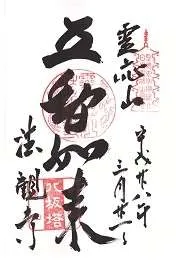 霊応山
平成廿八年
三月廿一日
五智如来
法観寺
八坂塔